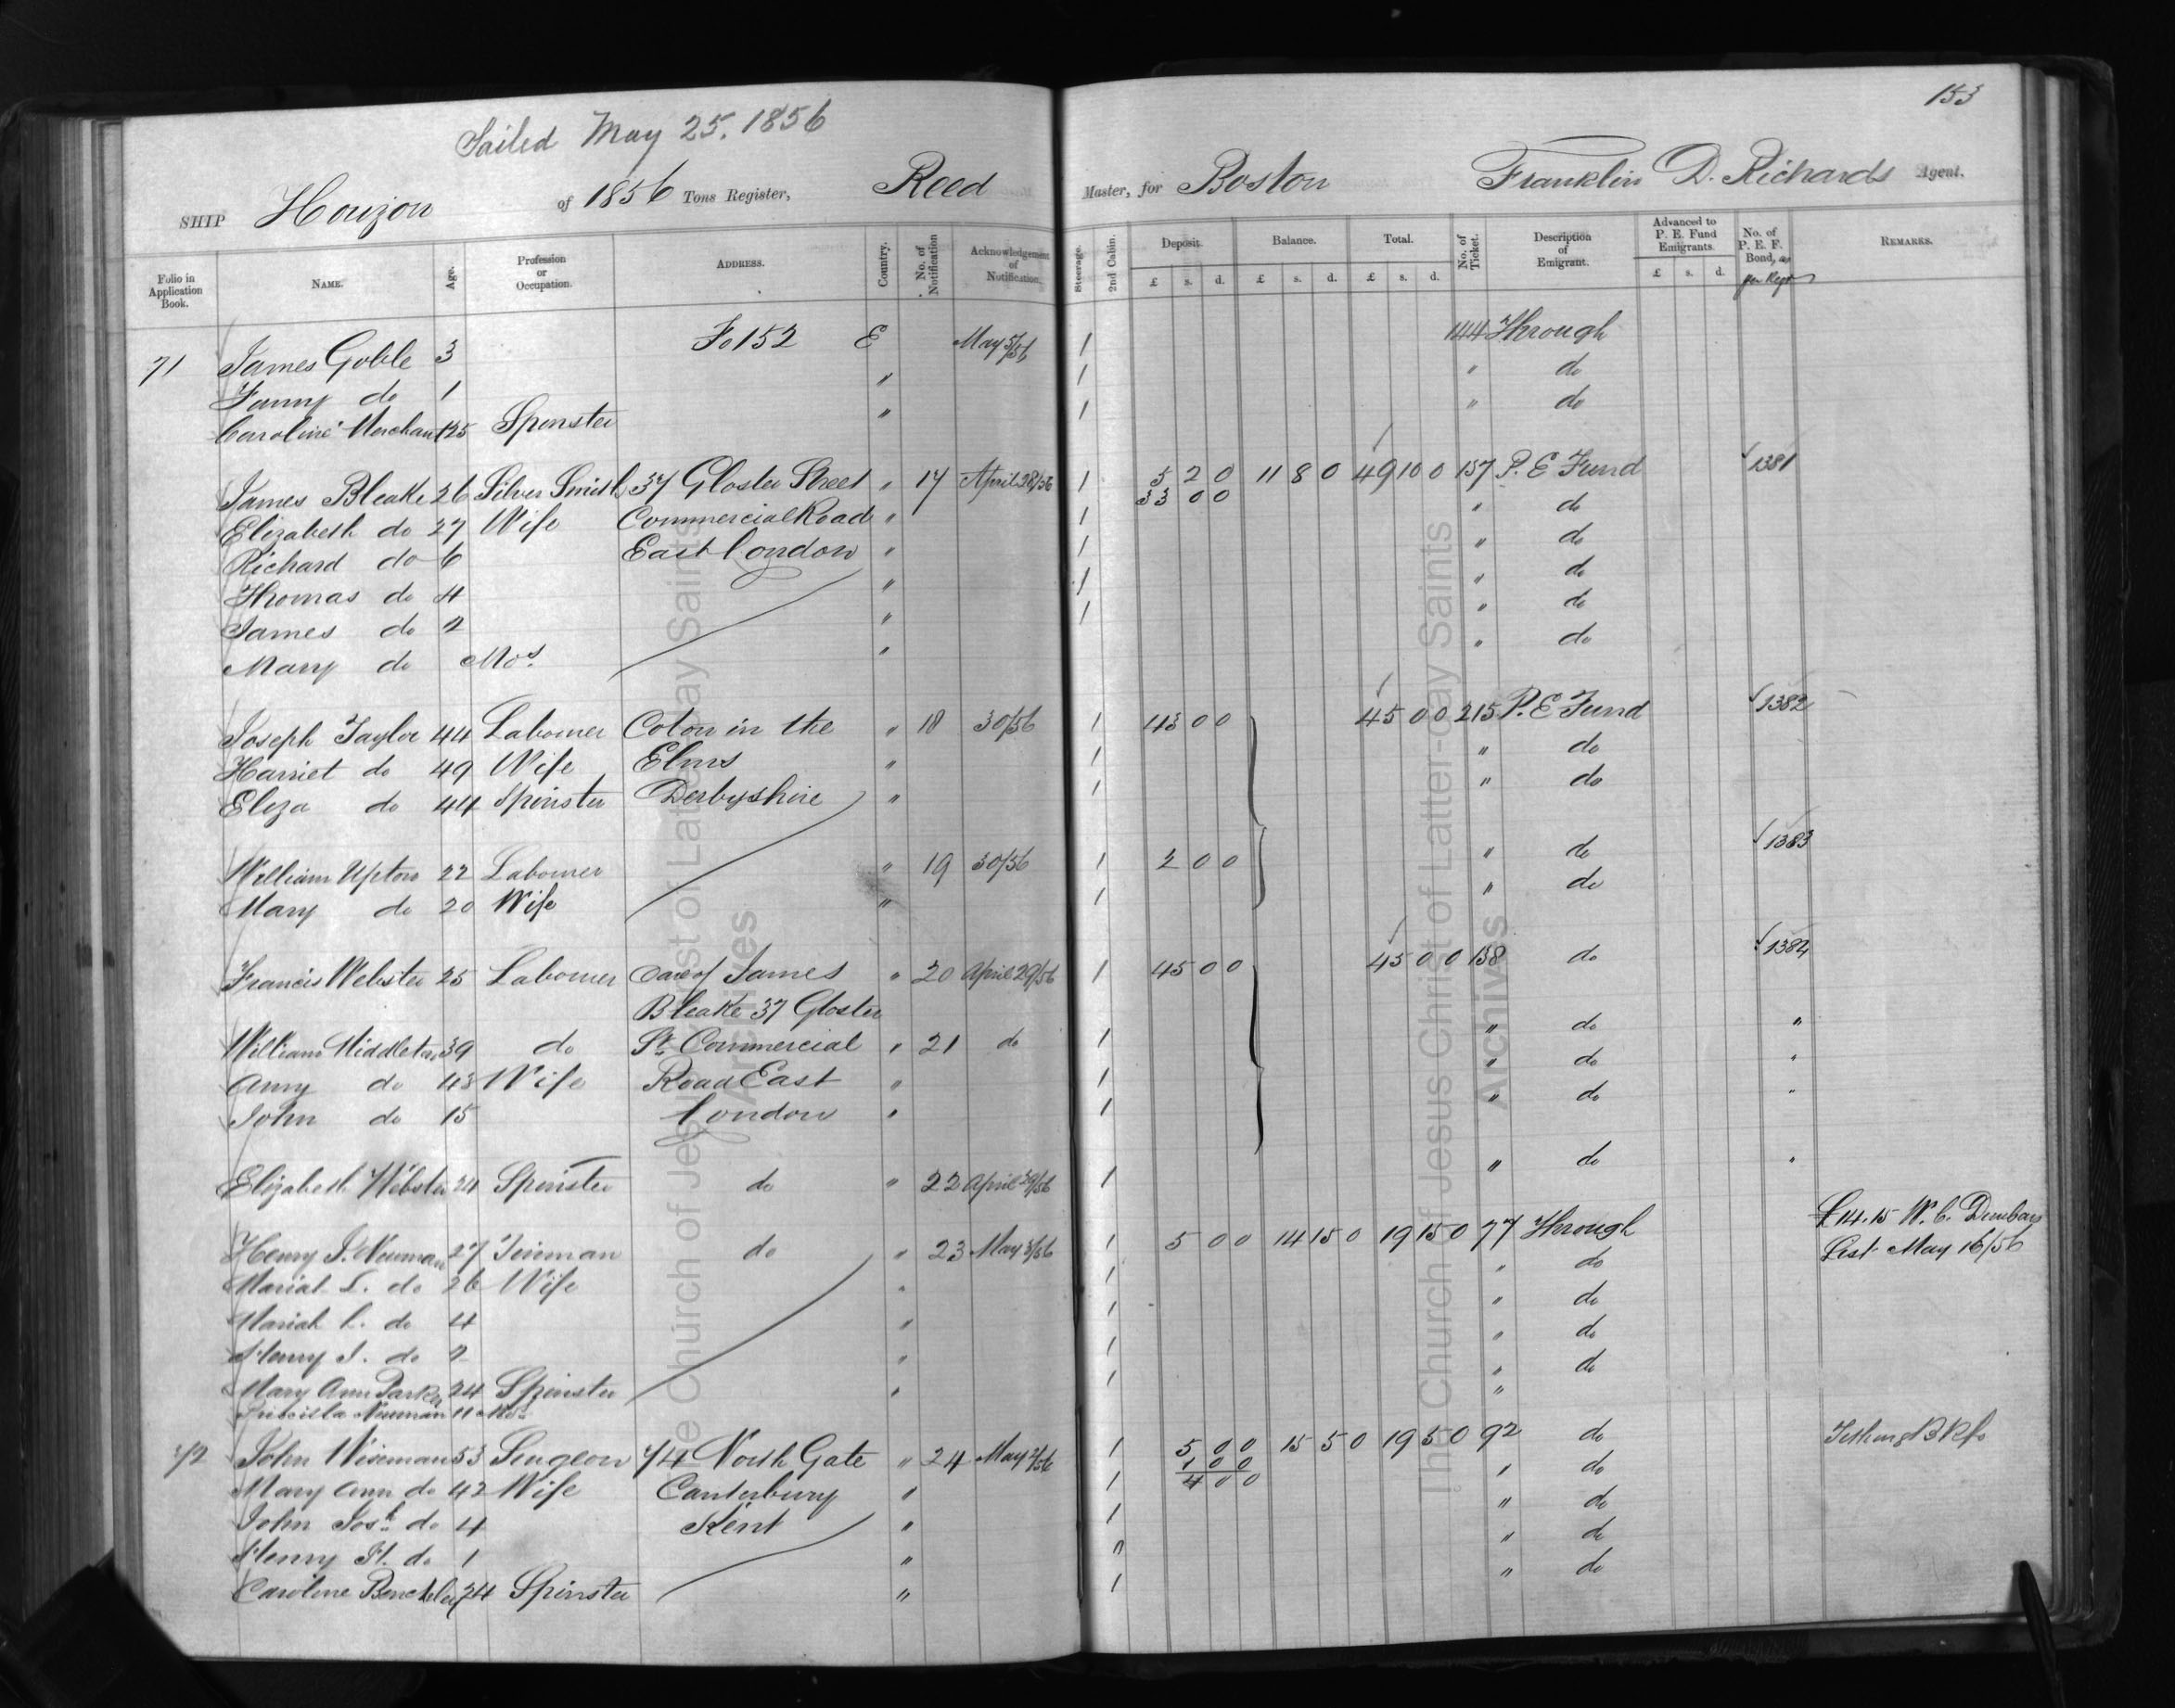 153
Sailed May 25. 1856
SHIP Horizon of 1856 Tons Register, Reed Master, for Boston Franklin D. Richards Agent.
Folio in Application Book. NAME. Age. Profession or Occupation. ADDRESS. Country. No. of Notification Acknowledgement of Notification. Steerage. 2nd Cabin. Deposit. £ s. d. Balance. £ s. d. Total. £ s. d. No. of Ticket. Description of Emigrant. Advanced to P. E. Fund Emigrants. £ s. d. No. of P. E. F. Bond, as per Regr REMARKS.
71 James Goble 3 Fo 152 E May 5/56 1 144 Through
Fanny do 1 " 1 " do
Caroline Merchant 25 Spinster " 1 " do
James Bleake 26 Silver Smith 37 Gloster Street " 17 April 28/56 1 5 2 0 11 8 0 49 10 0 157 P. E Fund 1381
33 0 0
Elizabeth do 27 Wife Commercial Road " 1 " do
Richard do 6 East London " 1 " do
Thomas do 4 " 1 " do
James do 2 " 1 " do
Mary do Mos. " " do
Joseph Taylor 44 Labourer Coton in the " 18 30/56 1 43 0 0 45 0 0 215 P. E Fund 1382
Harriet do 49 Wife Elms " 1 " do
Eliza do 44 Spinster Derbyshire " 1 " do
William Upton 22 Labourer " 19 30/56 1 2 0 0 " do 1383
Mary do 20 Wife " 1 " do
Francis Webster 25 Labourer Care of James " 20 April 29/56 1 45 0 0 45 0 0 138 do 1384
Bleake 37 Gloster
William Middleton 39 do St. Commercial " 21 do 1 " do "
Amy do 43 Wife Road East " 1 " do "
John do 15 London " 1 " do "
Elizabeth Webster 24 Spinster do " 22 April 29/56 1 " do "
Henry J. Newman 27 Tinman do " 23 May 3/56 1 5 0 0 14 15 0 19 15 0 77 Through £14.15 W. C. Dunbars
List May 16/56
Mariah L. do 26 Wife " 1 " do
Mariah L. do 4 " 1 " do
Henry J. do 2 " 1 " do
Mary Ann Parker 24 Spinster " 1 " do
Priscilla Newman 11 Mos "
72 John Wiseman 53 Surgeon 74 North Gate " 24 May 2/56 1 5 0 0 15 5 0 19 5 0 92 do
1 0 0
4 0 0
Mary Ann do 42 Wife Canterbury " 1 " do
John Josh. do 4 Kent " 1 " do
Henry H. do 1 " " " do
Caroline Benchley 24 Spinster " 1 " do
The Church of Jesus Christ of Latter-day Saints
Archives
The Church of Jesus Christ of Latter-day Saints
Archives